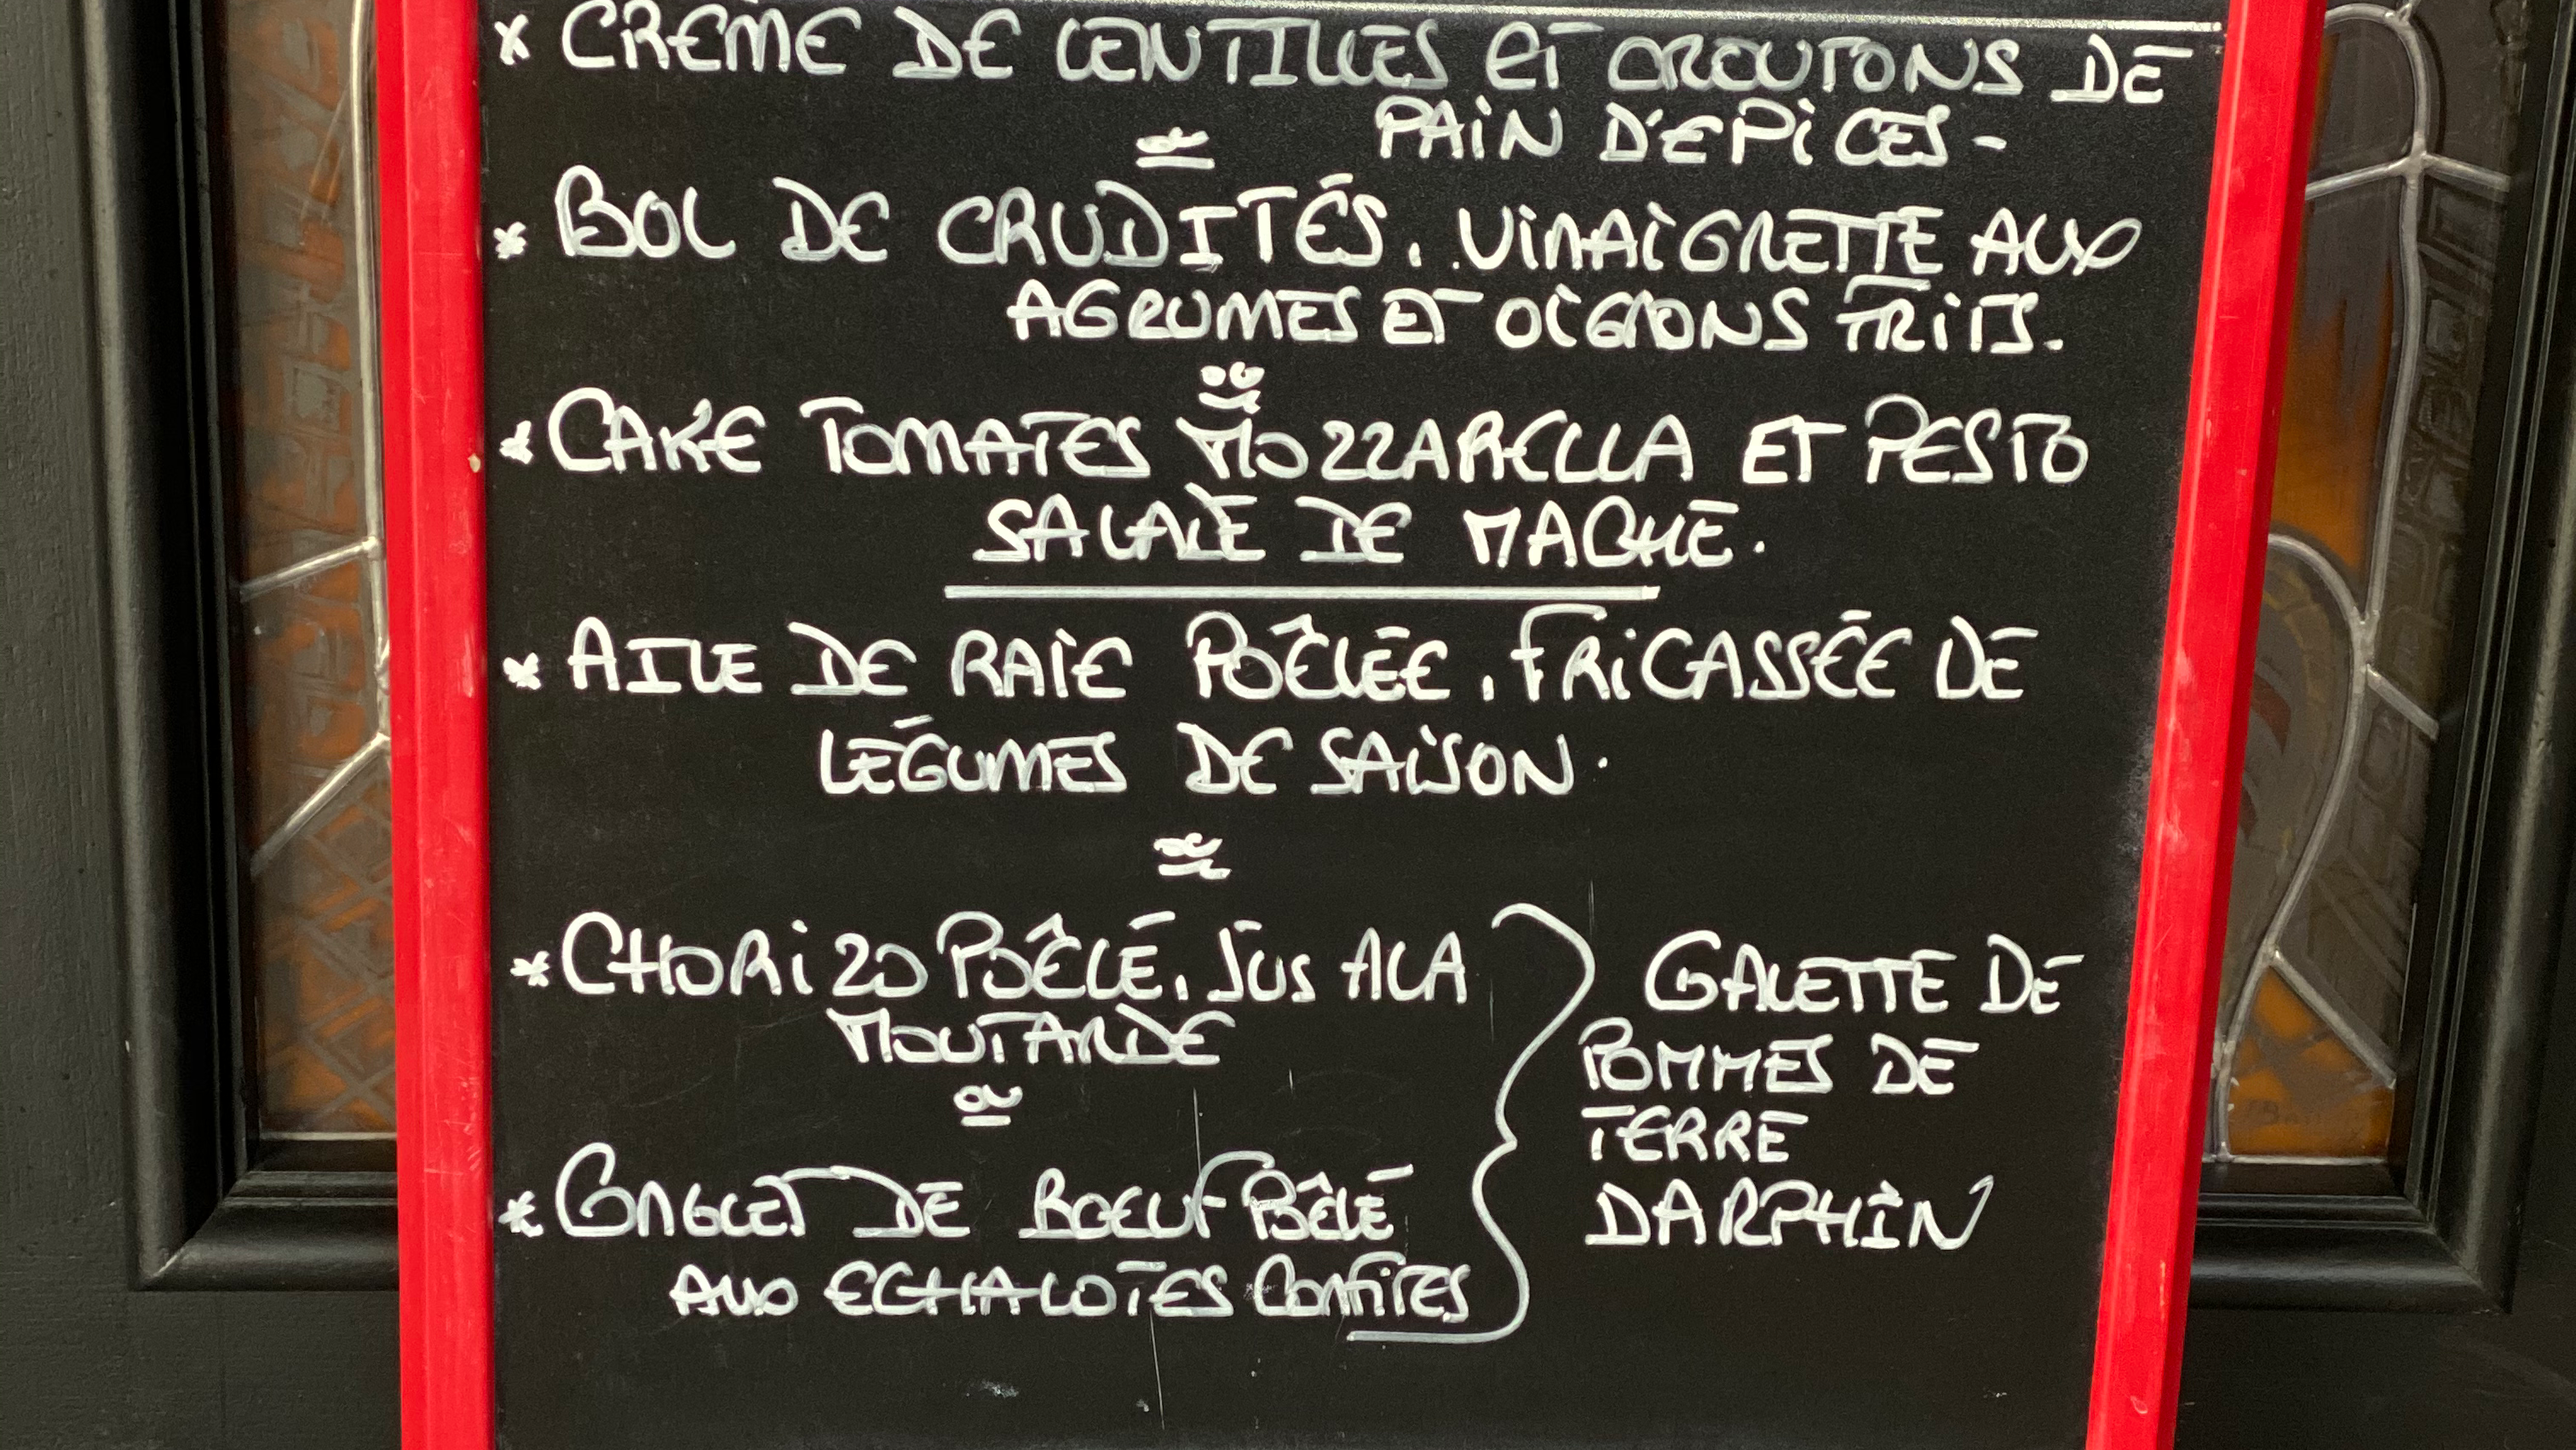 * CRÈME DE LENTILLES ET CROUTONS DE
PAIN D'EPICES -
* BOL DE CRUDITÉS, VINAIGRETTE AUX
AGRUMES ET OIGNONS FRITS.
* CAKE TOMATES MOZZARELLA ET PESTO
SALADE DE MACHE.
* AILE DE RAIE POÊLÉE, FRICASSÉE DE
LÉGUMES DE SAISON.
* CHORIZO POÊLÉ, JUS A LA
MOUTARDE
* ONGLET DE BOEUF POÊLÉ
AUX ECHALOTES CONFITES
GALETTE DE
POMMES DE
TERRE
DARPHIN